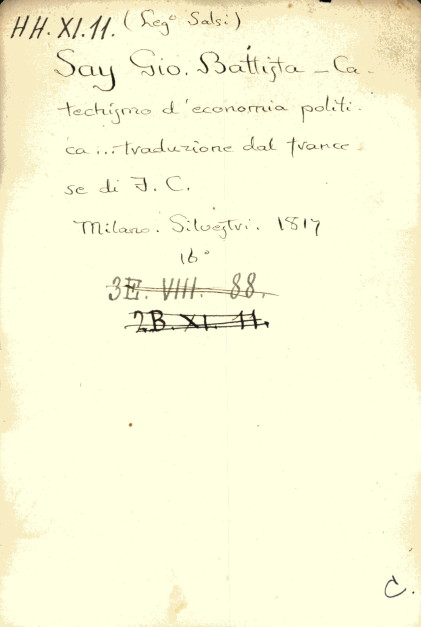 HH. XI. 11. (Leg° Salsi)
Say Gio. Battista - Ca-
techismo d'economia politi-
ca... traduzione dal france
se di F. C.
Milano. Silvestri. 1817
16°
3E. VIII. 88.
2B. XI. 11.
C.